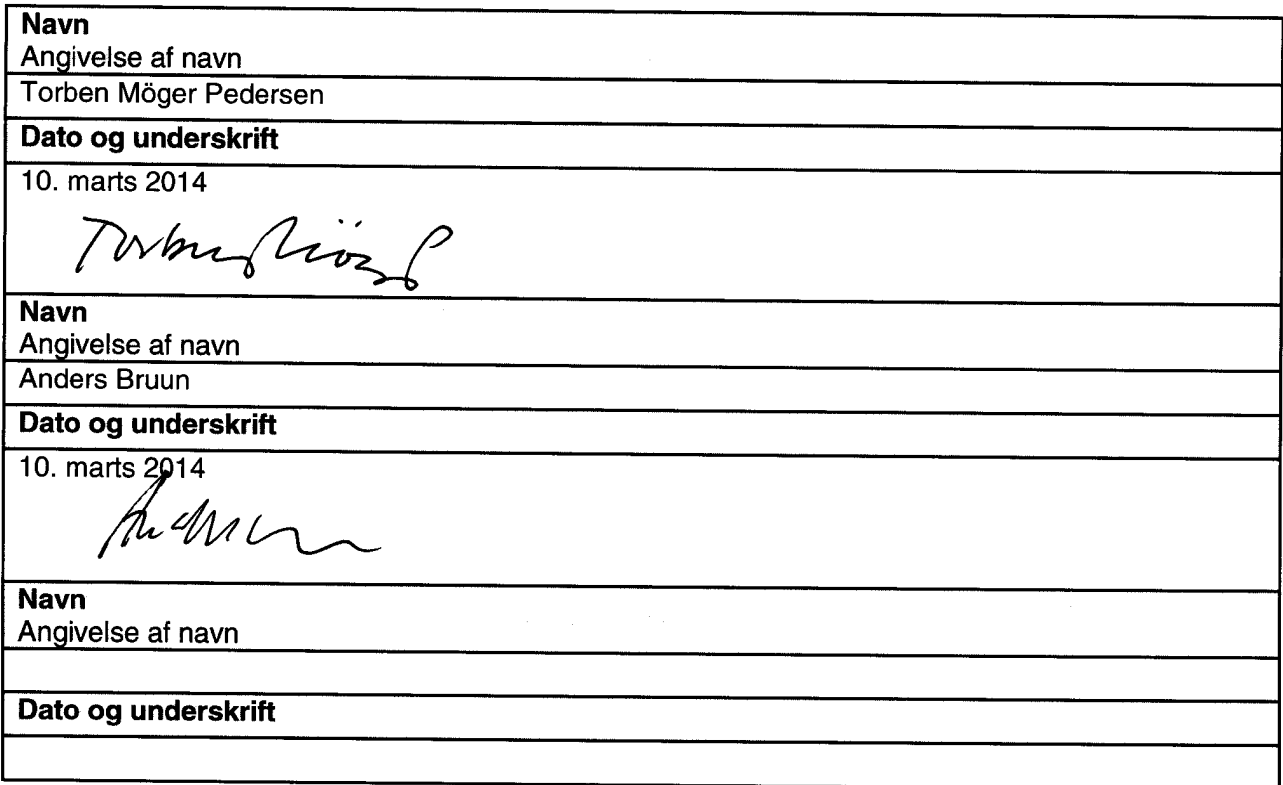 Navn
Angivelse af navn
Torben Möger Pedersen
Dato og underskrift
10. marts 2014
Torben Möger P
Navn
Angivelse af navn
Anders Bruun
Dato og underskrift
10. marts 2014
Navn
Angivelse af navn
Dato og underskrift